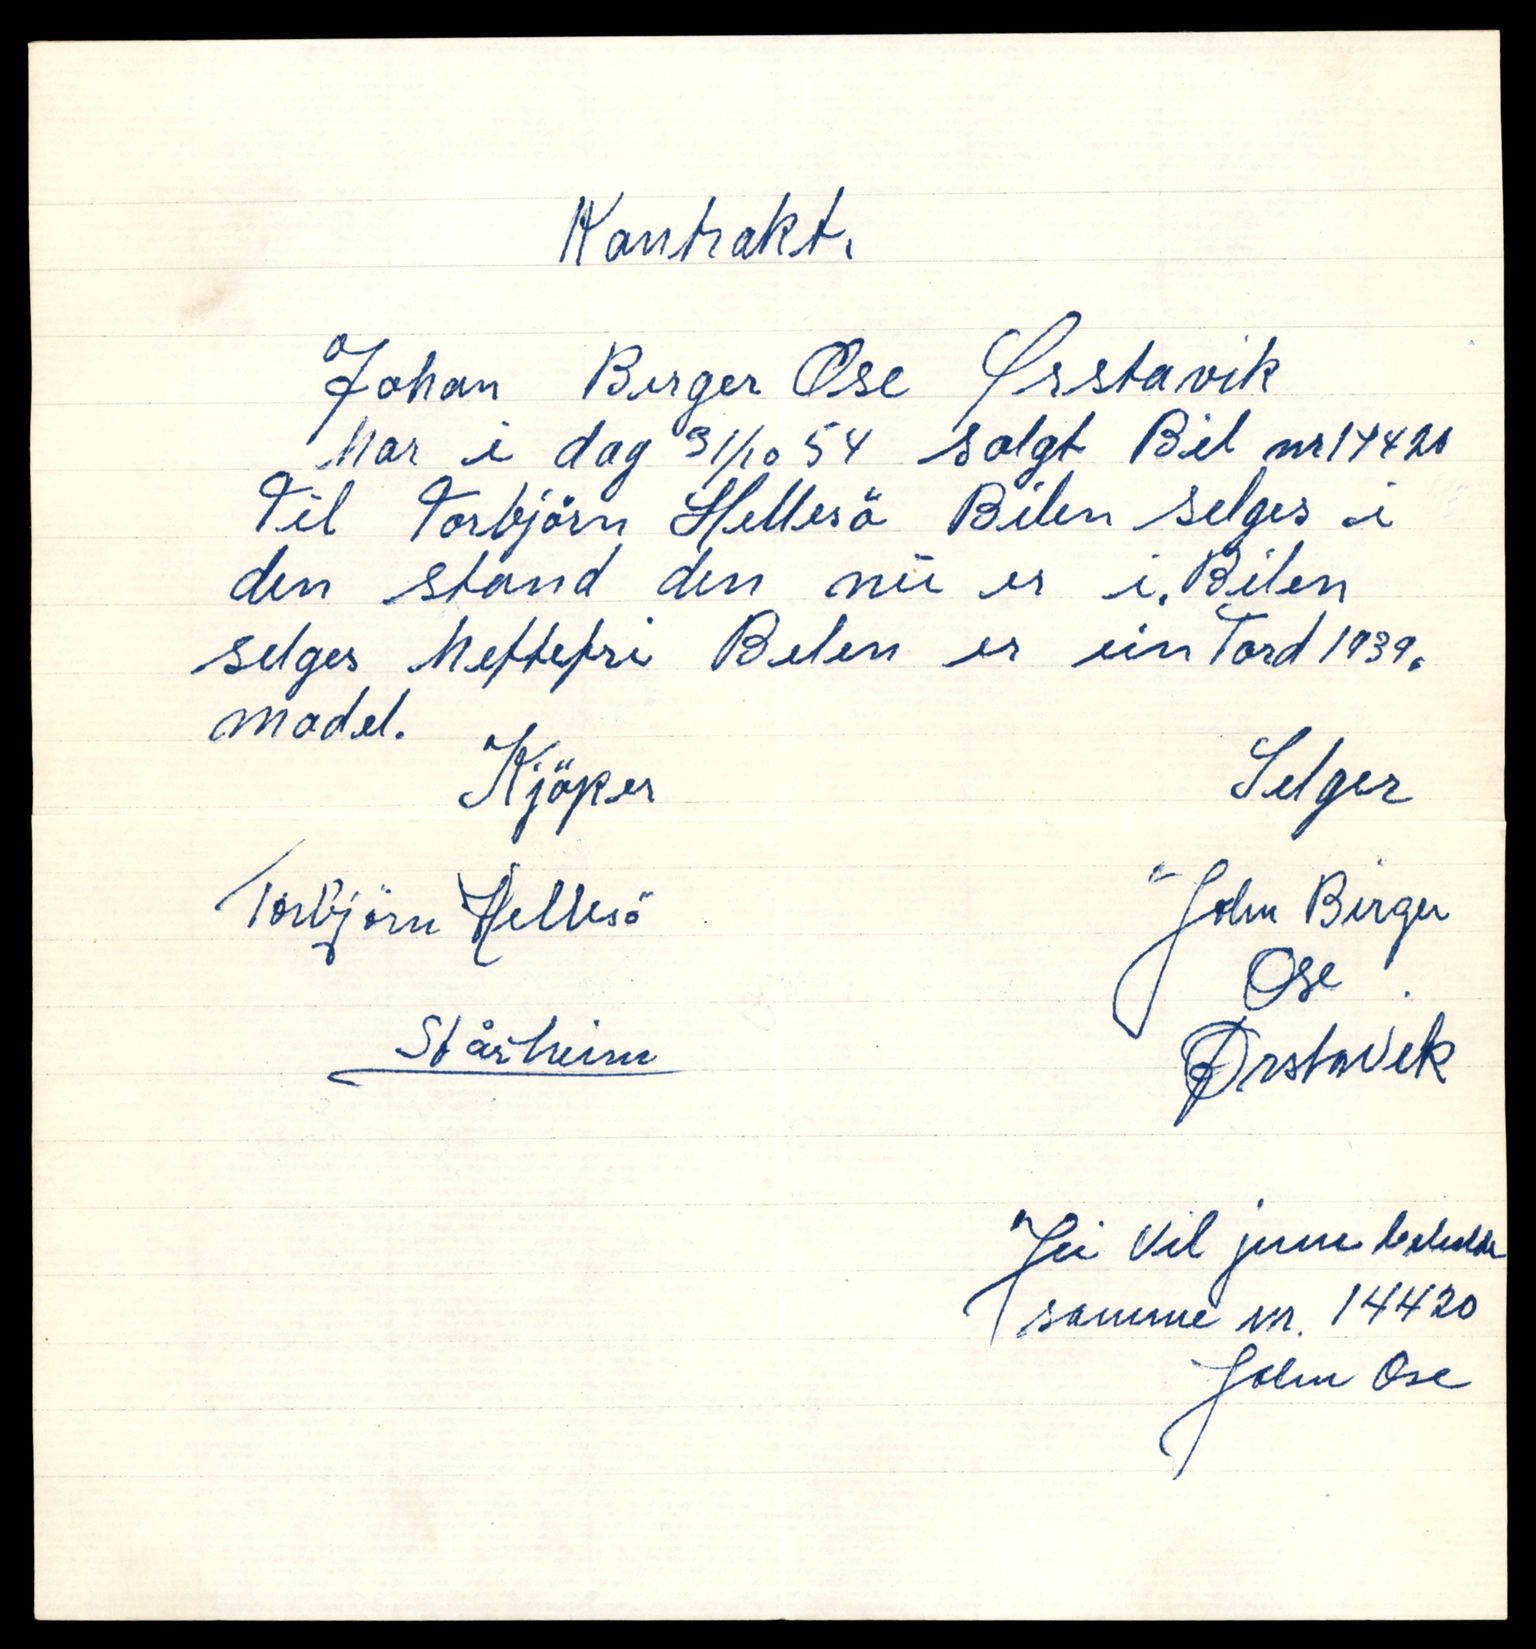 Kontrakt.
Johan Birger Ose Ørstavik
har i dag 31/10 54 solgt Bil nr 14420
Til Torbjörn Hellesö Bilen selges i
den stand den nu er i. Bilen
selges heftefri Bilen er ein Ford 1939.
model.
Kjöper Selger
Torbjörn Hellesö John Birger
Ose
Stårheim Ørstavik
Jei Vil jerne beholde
samme nr. 14420
John Ose